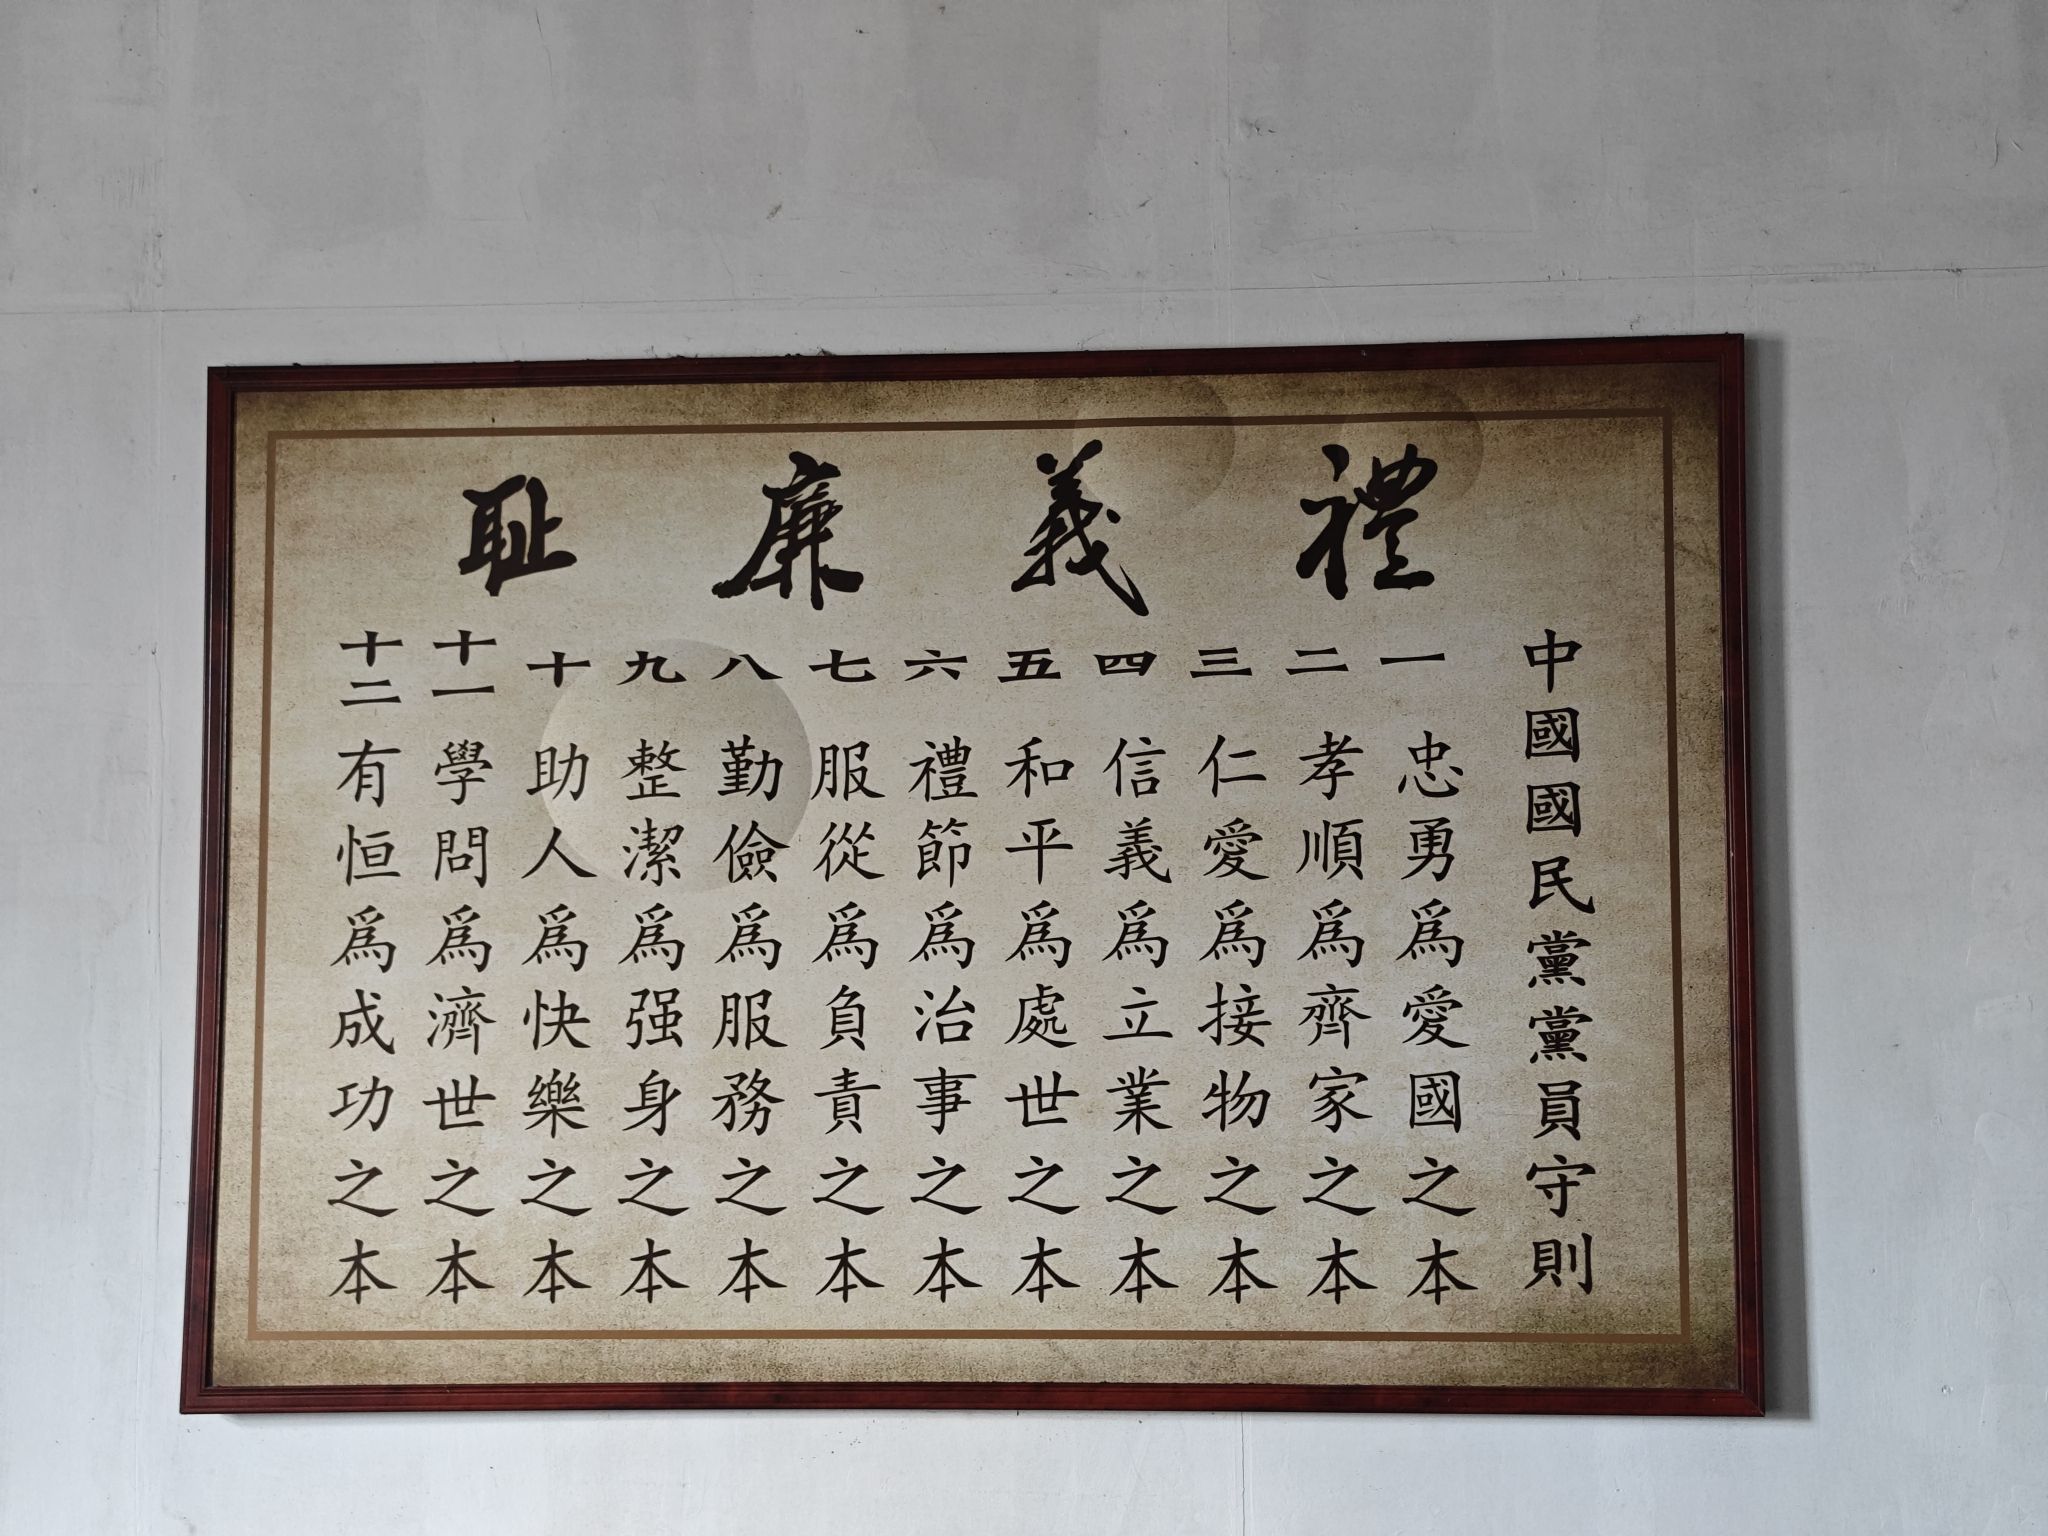 禮義廉恥
中國國民黨黨員守則
一 忠勇爲愛國之本
二 孝順爲齊家之本
三 仁愛爲接物之本
四 信義爲立業之本
五 和平爲處世之本
六 禮節爲治事之本
七 服從爲負責之本
八 勤儉爲服務之本
九 整潔爲强身之本
十 助人爲快樂之本
十一 學問爲濟世之本
十二 有恒爲成功之本